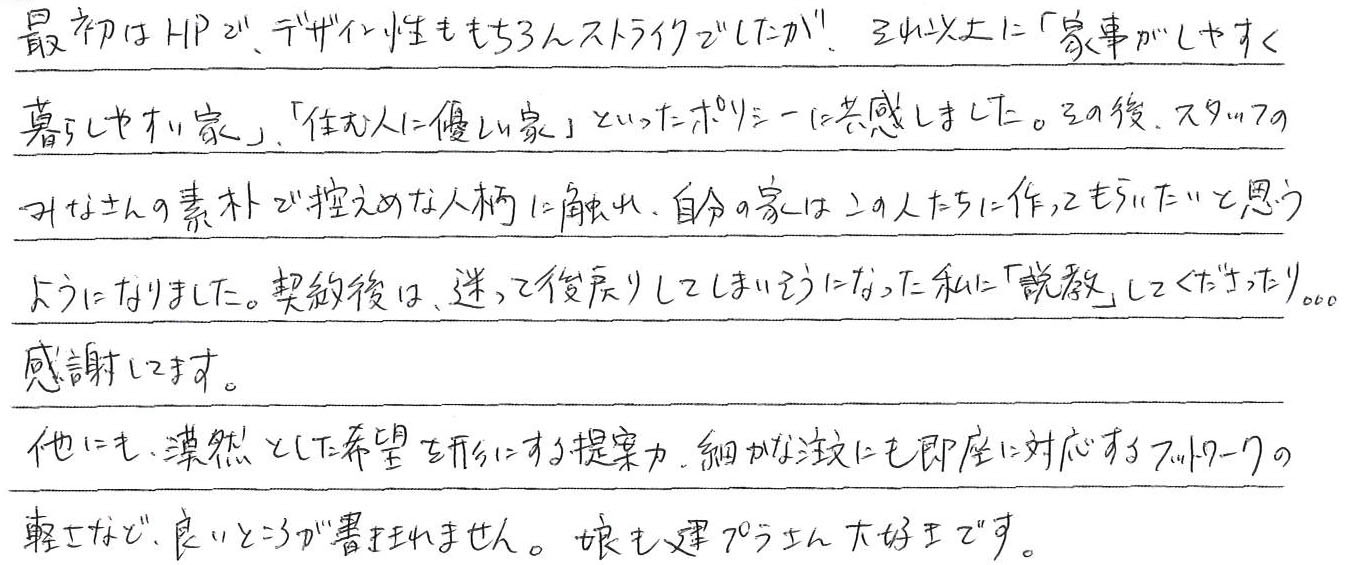 最初はHPで、デザイン性ももちろんストライクでしたが、それ以上に「家事がしやすく
暮らしやすい家」、「住む人に優しい家」といったポリシーに共感しました。その後、スタッフの
みなさんの素朴で控えめな人柄に触れ、自分の家はこの人たちに作ってもらいたいと思う
ようになりました。契約後は、迷って後戻りしてしまいそうになった私に「説教」してくださったり。。。
感謝してます。
他にも、漠然とした希望を形にする提案力、細かな注文にも即座に対応するフットワークの
軽さなど、良いところが書ききれません。娘も建プラさん大好きです。